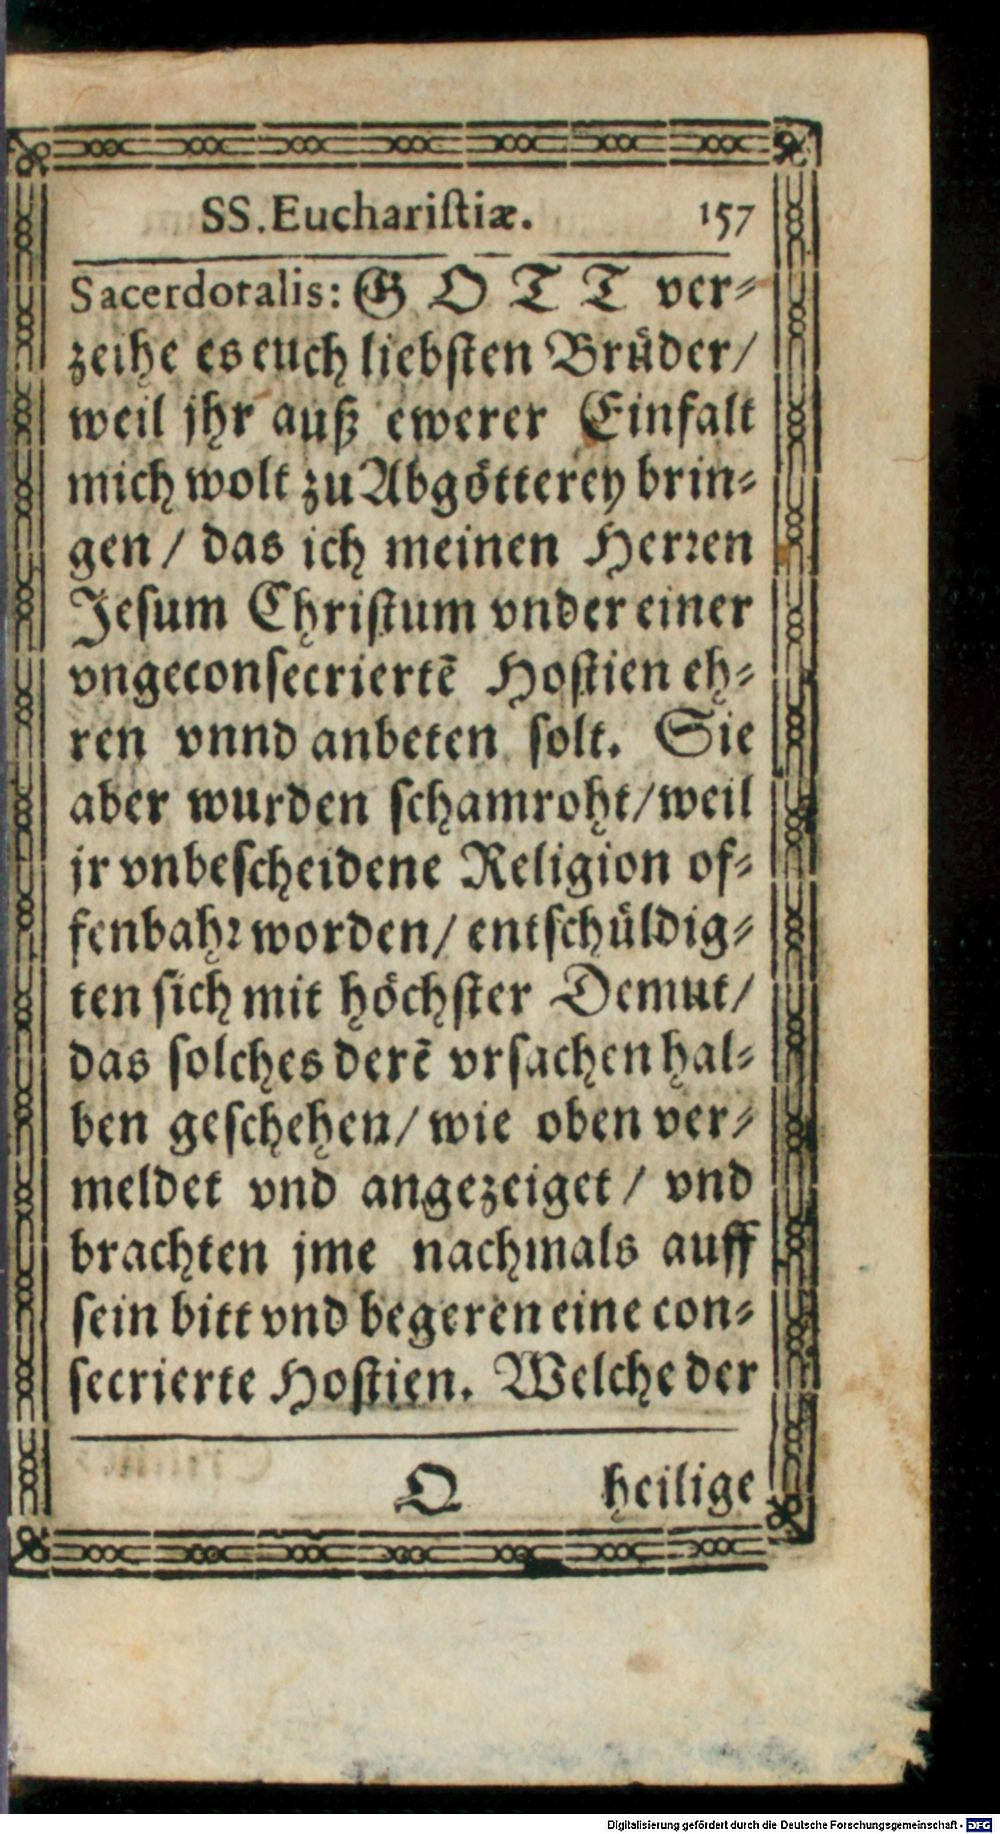 SS. Euchariſtiæ. 157
Sacerdotalis: GOTT ver⸗
zeihe es euch liebſten Bruͤder/
weil jhr auß ewerer Einfalt
mich wolt zu Abgoͤtterey brin⸗
gen / das ich meinen Herꝛen
Jeſum Chriſtum vnder einer
vngeconſecriertẽ Hoſtien eh⸗
ren vnnd anbeten ſolt. Sie
aber wurden ſchamroht/weil
jr vnbeſcheidene Religion of⸗
fenbahꝛ worden/ entſchuͤldig⸗
ten ſich mit hoͤchſter Demut/
das ſolches derẽ vrſachen hal⸗
ben geſchehen/ wie oben ver⸗
meldet vnd angezeiget / vnd
brachten jme nachmals auff
ſein bitt vnd begeren eine con⸗
ſecrierte Hoſtien. Welche der
O heilige
Digitalisierung gefördert durch die Deutsche Forschungsgemeinschaft - DFG